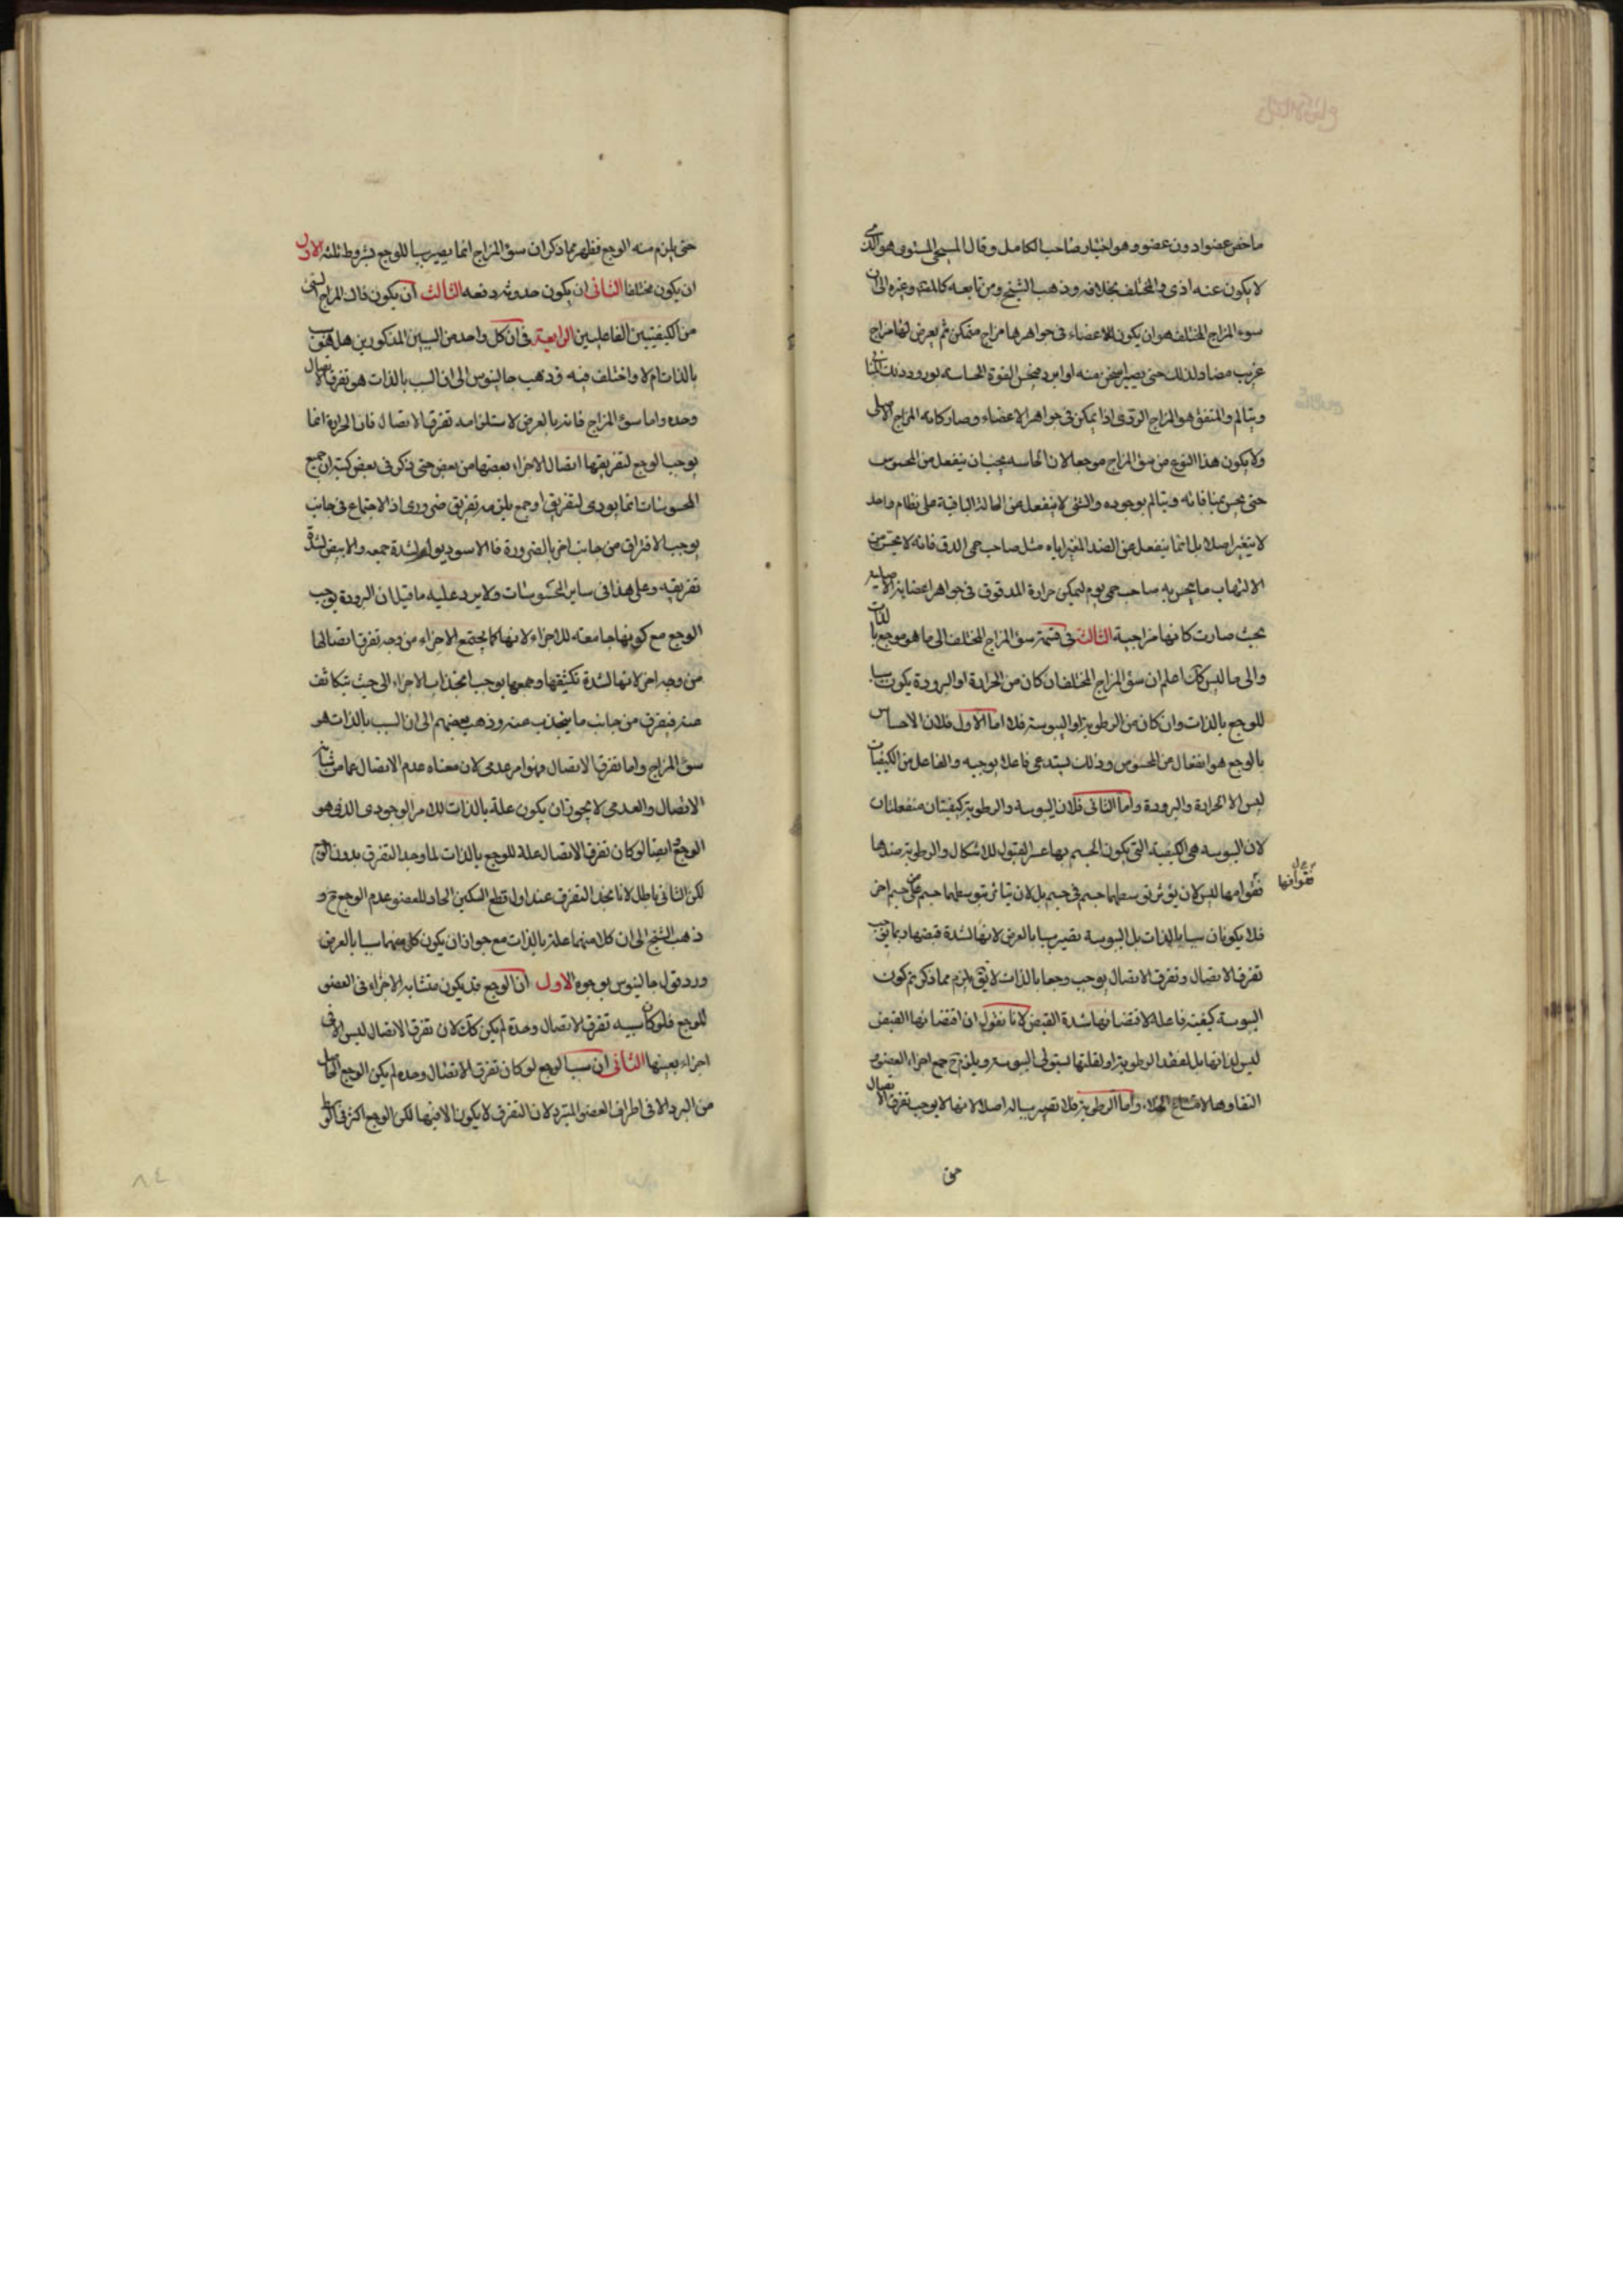 ما خص عضوا دون عضو وهو اختيار صاحب الكامل وقال المسيحى المستوى هو الذى
لا يكون عنه اذى والمختلف بخلافه وذهب الشيخ ومن تابعه كالمص وغيره الى ان
سوء المزاج المختلف هو ان يكون للاعضاء فى جواهرها مزاج متمكن ثم يعرض لها مزاج
غريب مضاد لذلك حتى يصير اسخن منه او ابرد فيحس القوة الحاسة بورود ذلك
ويتالم والمتفق هو المزاج الردى اذا تمكن فى جواهر الاعضاء وصار كانه المزاج الاصلى
ولا يكون هذا النوع من سؤ المزاج موجعا لان الحاسه يجب ان ينفعل من المحسوس
حتى يحس بمنافاته ويتالم بوجوده والشئ لا ينفعل عن الحالة الباقية على نظام واحد
لا يتغير اصلا بل انما ينفعل عن الضد المغير اياه مثل صاحب حمى الدق فانه لا يحس من
الالتهاب ما يحس به صاحب حمى يوم لتمكن حرارة المدقوق فى جواهر اعضايه الاصليه
بحيث صارت كانها مزاجية الثالث فى قسمة سؤ المزاج المختلف الى ما هو موجع بالذات
والى ما ليس كك اعلم ان سؤ المزاج المختلف ان كان من الحرارة او البرودة يكون سببا
للوجع بالذات وان كان من الرطوبة او اليبوسة فلا اما الاول فلان الاحساس
بالوجع هو انفعال عن المحسوس وذلك يستدعى فاعلا يوجبه والفاعل من الكيفيات
ليس الا الحرارة والبرودة واما الثانى فلان اليبوسة والرطوبة كيفيتان منفعلتان
لان اليبوسه هى الكيفية التى يكون الجسم بها عسر القبول للاشكال والرطوبة ضدها
فقوامها ليس لان يؤثر بتوسطها جسم فى جسم بل لان يتاثر بتوسطها جسم عن جسم اخر
فلا يكونان سببا بالذات بل اليبوسة تصير سببا بالعرض لانها لشدة قبضها ربما يوجب
تفرق الاتصال وتفرق الاتصال يوجب وجعا بالذات لا يق يلزم مما ذكرتم كون
اليبوسة كيفية فاعلة لاقتضائها شدة القبض لانا نقول ان اقتضائها القبض
ليس لذاتها بل لفقد الرطوبة او لقلتها يستولى اليبوسة ويلزم ح جمع اجزاء العضو و
التقاوها لامتناع الخلاء واما الرطوبة فلا تصير سببا له اصلا لانها لا يوجب تفرق الاتصال
حتى يلزم منه الوجع فظهر مما ذكر ان سؤ المزاج انما يصير سببا للوجع بشروط ثلثه الاول
ان يكون مختلفا الثانى ان يكون حدوثه دفعه الثالث ان يكون ذلك المزاج
من الكيفيتين الفاعليتين الرابعة فى ان كل واحد من السببين المذكورين هل هو سبب
بالذات ام لا واختلف فيه فذهب جالينوس الى ان السبب بالذات هو تفرق الاتصال
وحده واما سؤ المزاج فانه بالعرض لاستلزامه تفرق الاتصال فان الحرارة انما
يوجب الوجع لتفريقها اتصال الاجزاء بعضها من بعض حتى ذكر فى بعض كتبه ان جميع
المحسوسات انما يودى لتفريق او جمع يلزمه تفريق ضرورى اذ الاجتماع فى جانب
يوجب الافتراق من جانب اخر بالضرورة فالاسود يولم لشدة جمعه والابيض لشدة
تفريقه وعلى هذا فى ساير المحسوسات ولا يرد عليه ما قيل ان البرودة يوجب
الوجع مع كونها جامعة للاجزاء لانها كما يجتمع الاجزاء من وجه تفرق اتصالها
من وجه اخر لانها لشدة تكثيفها وجمعها يوجب انجذاب الاجزاء الى حيث يتكاثف
عنه فيتفرق من جانب ما ينجذب عنه وذهب بعضهم الى ان السبب بالذات هو
سؤ المزاج واما تفرق الاتصال فهو امر عدمى لان معناه عدم الاتصال عما من شانه
الاتصال والعدمى لا يجوز ان يكون علة بالذات للامر الوجودى الذى هو
الوجع وايضا لو كان تفرق الاتصال علة للوجع بالذات لما وجد التفرق بدون الوجع
لكن الثانى باطل لانا نجد التفرق عند اول قطع السكين الحاد للعضو عدم الوجع ح و
ذهب الشيخ الى ان كلا منهما علة بالذات مع جواز ان يكون كل منهما سببا بالعرض
ورد قول جالينوس بوجوه الاول ان الوجع قد يكون متشابه الاجزاء فى العضو
للوجع فلو كان سببه تفرق الاتصال وحده لم يكن كك لان تفرق الاتصال ليس الا فى
اجزاء بعينها الثانى ان سبب الوجع لو كان تفرق الاتصال وحده لم يكن الوجع الحاصل
من البرد الا فى اطراف العضو المتبرد لان التفرق لا يكون الا فيها لكن الوجع اكثر فى الوسط
٨٤